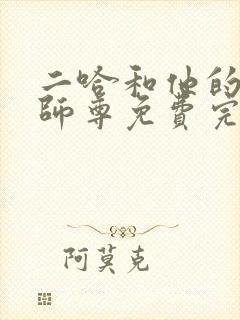 二哈和他的
師尊免費完
阿莫克